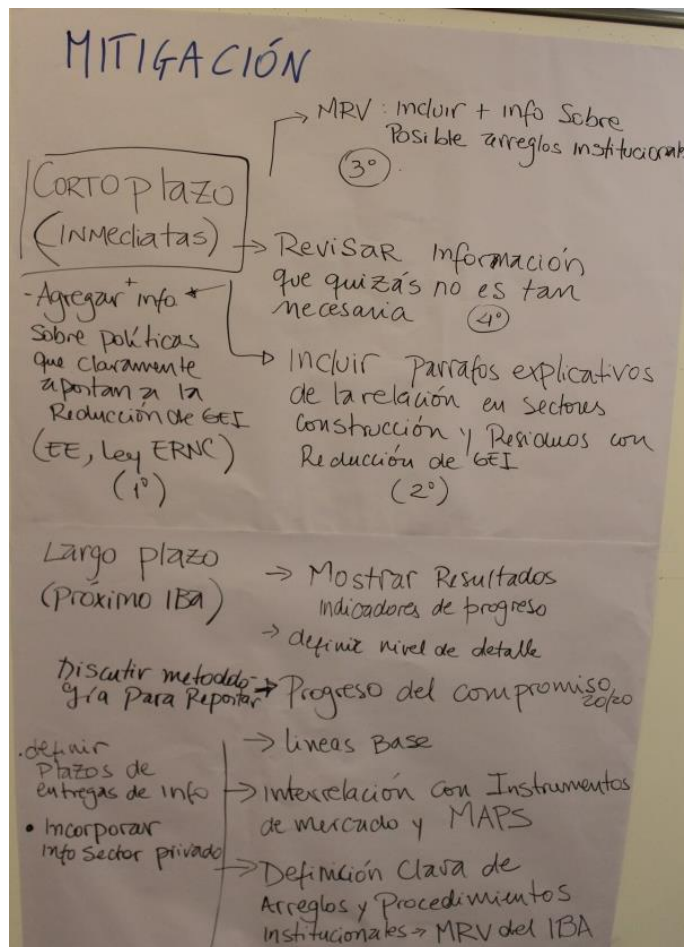 MITIGACIÓN
→ MRV : Incluir + info Sobre
Posible arreglos institucionales
(3º)
CORTO plazo
(INMediatas)
→ Revisar Información
que quizás no es tan
necesaria (4º)
- Agregar + info
sobre políticas
que claramente
aportan a la
Reducción de GEI
(EE, Ley ERNC)
(1º)
→ Incluir Parrafos explicativos
de la relación en sectores
construcción y Residuos con
Reducción de GEI
(2º)
Largo plazo
(próximo IBA)
→ Mostrar Resultados
indicadores de progreso
→ definir nivel de detalle
Discutir metodolo-
gía Para Reportar → Progreso del compromiso 20/20
→ lineas Base
. definir
Plazos de
entregas de info
• Incorporar
Info Sector privado
→ interrelación con Instrumentos
de mercado y MAPS
→ Definición Clara de
Arreglos y Procedimientos
Institucionales → MRV del IBA